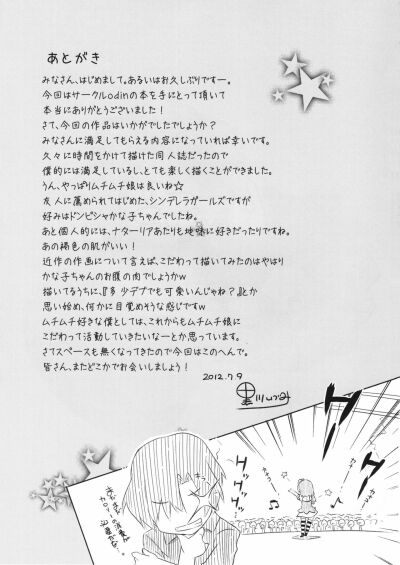 あとがき
みなさん、はじめまして。あるいはお久しぶりですー。
今回はサークルodinの本を手にとって頂いて
本当にありがとうございました！
さて、今回の作品はいかがでしたでしょうか？
みなさんに満足してもらえる内容になっていれば幸いです。
久々に時間をかけて描けた同人誌だったので
僕的には満足しているし、とても楽しく描くことができました。
うん、やっぱりムチムチ娘は良いね☆
友人に薦められてはじめた、シンデレラガールズですが
好みはドンピシャかな子ちゃんでしたね。
あと個人的には、ナターリアあたりも地味に好きだったりですね。
あの褐色の肌がいい！
近作の作画について言えば、こだわって描いてみたのはやはり
かな子ちゃんのお腹の肉でしょうかw
描いてるうちに、『多少デブでも可愛いんじゃね？』とか
思い始め、何かに目覚めそうな感じですw
ムチムチ好きな僕としては、これからもムチムチ娘に
こだわって活動していきたいなーとか思っています。
さてスペースも無くなってきたので今回はこのへんで。
皆さん、またどこかでお会いしましょう！
2012.7.9